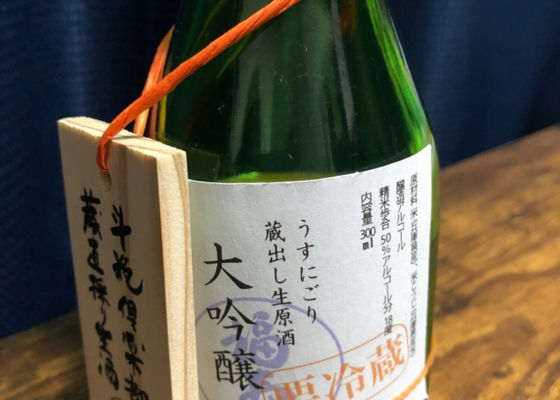 原材料 米(兵庫県産)、米こうじ(兵庫県産米)
醸造アルコール
精米歩合 50% アルコール分 18度
内容量 300ml
うすにごり
蔵出し生原酒
大吟醸
要冷蔵
斗瓶倶楽部
蔵直採り生酒